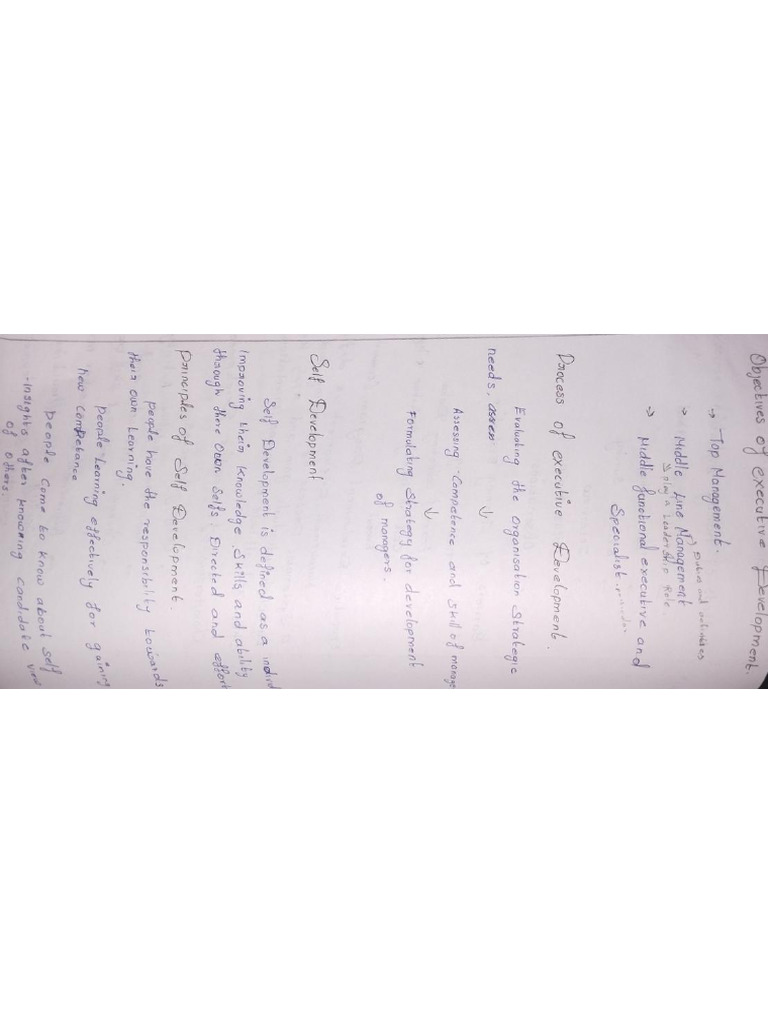 Objectives of executive Development.
→ Top Management.
→ Middle Line Management
→ play a Leadership Role.
Duties and activities
→ Middle functional executive and
Specialist.
Process of executive Development.
Evaluating the organisation Strategic
needs,
↓
Assessing Competence and skill of manage
↓
Formulating Strategy for development
of managers.
Self Development
Self Development is defined as a individ
Improving their knowledge skills and ability
through there own Selfs Directed and effort
Principles of Self Development
people have the responsibility towards
their own Learning.
people Learning effectively for gaining
new competance
people come to know about self
-insights after knowing candidate view
of others.